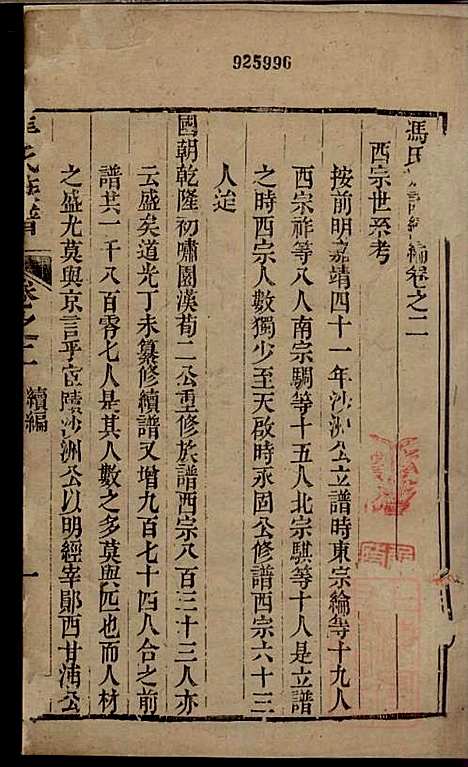 925996
馮氏族譜續編卷之二
西宗世系考
按前明嘉靖四十一年沙洲公立譜時東宗綸等十九人
西宗祥等八人南宗騆等十五人北宗騏等十人是立譜
之時西宗人數獨少至天啟時永固公修譜西宗六十三
人迨
國朝乾隆初嘯園漢荀二公重修族譜西宗八百三十三人亦
云盛矣道光丁未纂修續譜又增九百七十四人合之前
譜共一千八百零七人是其人數之多莫與匹也而人材
之盛尤莫與京言乎宦蹟沙洲公以明經宰鄖西甘浦公
氏族譜
卷之二
續編
一